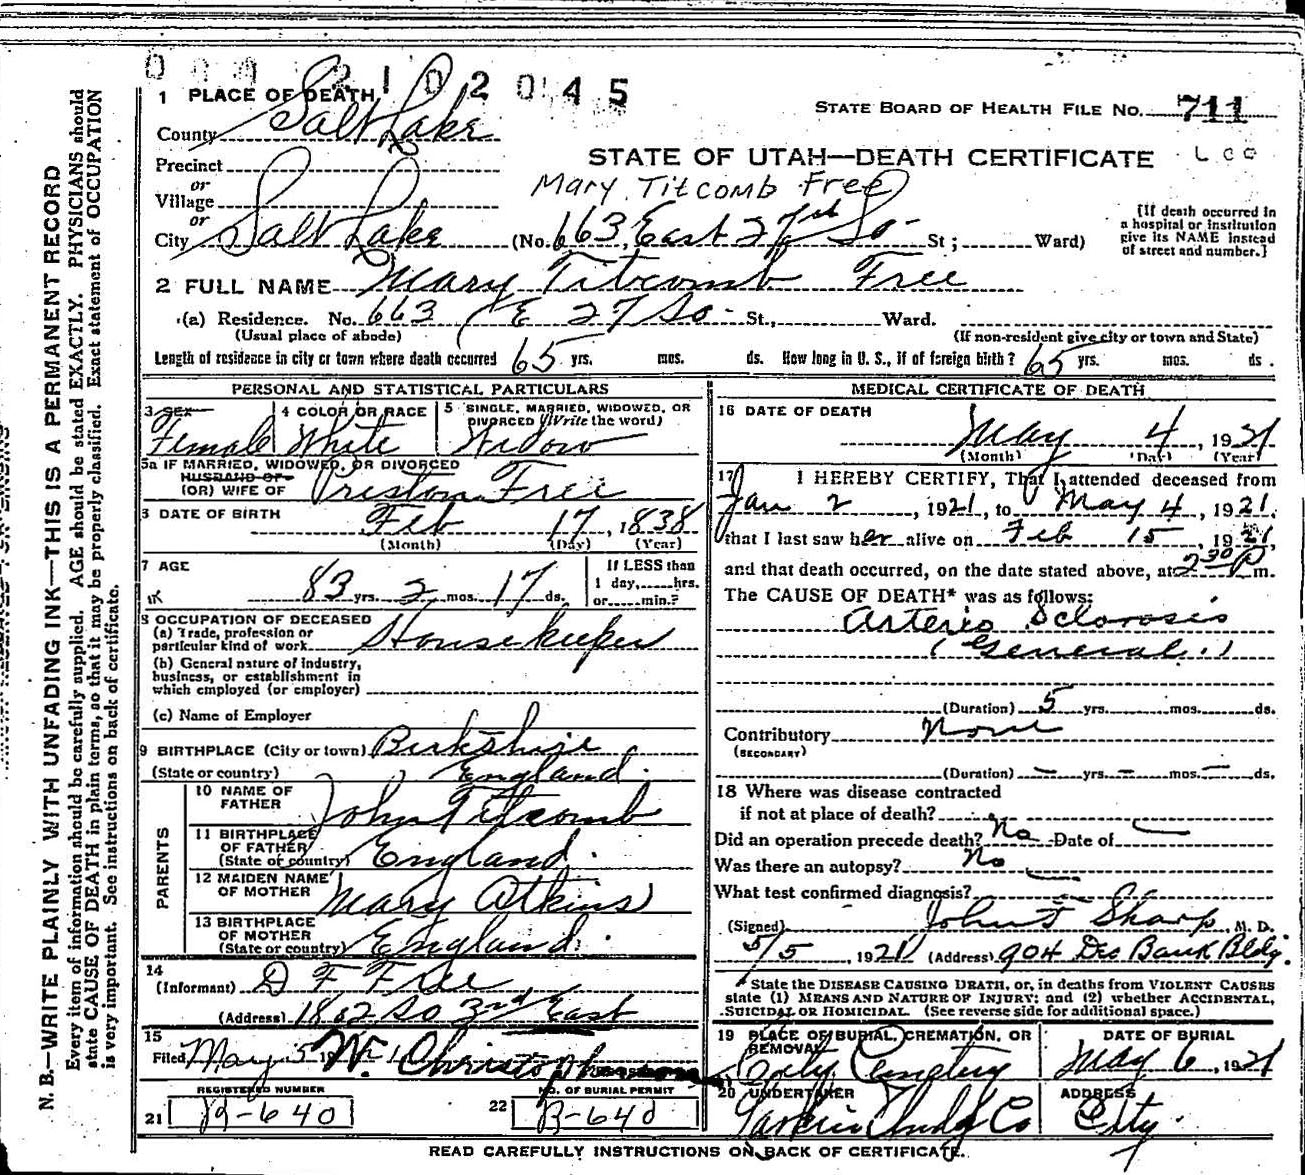 2 1 0 2 0 4 5
1 PLACE OF DEATH
STATE BOARD OF HEALTH FILE No. 711
County Salt Lake
STATE OF UTAH—DEATH CERTIFICATE
Precinct
or
Mary Titcomb Free
Village
or
City Salt Lake (No. 663, East 27th So St; Ward)
{If death occurred in
a hospital or institution
give its NAME instead
of street and number.}
2 FULL NAME Mary Titcomb Free
(a) Residence. No. 663 E 27 So St., Ward.
(Usual place of abode) (If non-resident give city or town and State)
Length of residence in city or town where death occurred 65 yrs. mos. ds. How long in U. S., if of foreign birth? 65 yrs. mos. ds.
PERSONAL AND STATISTICAL PARTICULARS
3 SEX 4 COLOR OR RACE 5 SINGLE, MARRIED, WIDOWED, OR
DIVORCED (Write the word)
Female White Widow
5a IF MARRIED, WIDOWED, OR DIVORCED
HUSBAND OF
(OR) WIFE OF Preston Free
6 DATE OF BIRTH Feb 17, 1838
(Month) (Day) (Year)
7 AGE 83 yrs. 2 mos. 17 ds.
If LESS than
1 day, hrs.
or min.?
8 OCCUPATION OF DECEASED
(a) Trade, profession or
particular kind of work Housekeeper
(b) General nature of industry,
business, or establishment in
which employed (or employer)
(c) Name of Employer
9 BIRTHPLACE (City or town) Berkshire
(State or country) England.
PARENTS
10 NAME OF
FATHER John Titcomb
11 BIRTHPLACE
OF FATHER
(State or country) England.
12 MAIDEN NAME
OF MOTHER Mary Atkins
13 BIRTHPLACE
OF MOTHER
(State or country) England.
14
(Informant) D F Free
(Address) 1862 So 3rd East
15
Filed May 5 19 W. Christoph
REGISTERED NUMBER NO. OF BURIAL PERMIT
21 B-640 22 B-640
MEDICAL CERTIFICATE OF DEATH
16 DATE OF DEATH
May 4, 1921
(Month) (Day) (Year)
17 I HEREBY CERTIFY, That I attended deceased from
Jan 2, 1921, to May 4, 1921.
that I last saw her alive on Feb 15, 1921,
and that death occurred, on the date stated above, at 2 30 P m.
The CAUSE OF DEATH* was as follows:
Arterio Sclorosis
(General.)
(Duration) 5 yrs. mos. ds.
Contributory None
(SECONDARY)
(Duration) — yrs. — mos. — ds.
18 Where was disease contracted
if not at place of death?
Did an operation precede death? No Date of
Was there an autopsy? No
What test confirmed diagnosis?
(Signed) John F Sharp, M. D.
5/5, 1921 (Address) 904 Des Bank Bldg.
* State the DISEASE CAUSING DEATH, or, in deaths from VIOLENT CAUSES
state (1) MEANS AND NATURE OF INJURY; and (2) whether ACCIDENTAL,
SUICIDAL OR HOMICIDAL. (See reverse side for additional space.)
19 PLACE OF BURIAL, CREMATION, OR
REMOVAL DATE OF BURIAL
City Cemetery May 6, 1921
20 UNDERTAKER ADDRESS
Larkin Undg Co City.
READ CAREFULLY INSTRUCTIONS ON BACK OF CERTIFICATE.
N. B.—WRITE PLAINLY WITH UNFADING INK—THIS IS A PERMANENT RECORD
Every item of information should be carefully supplied. AGE should be stated EXACTLY. PHYSICIANS should
state CAUSE OF DEATH in plain terms, so that it may be properly classified. Exact statement of OCCUPATION
is very important. See instructions on back of certificate.